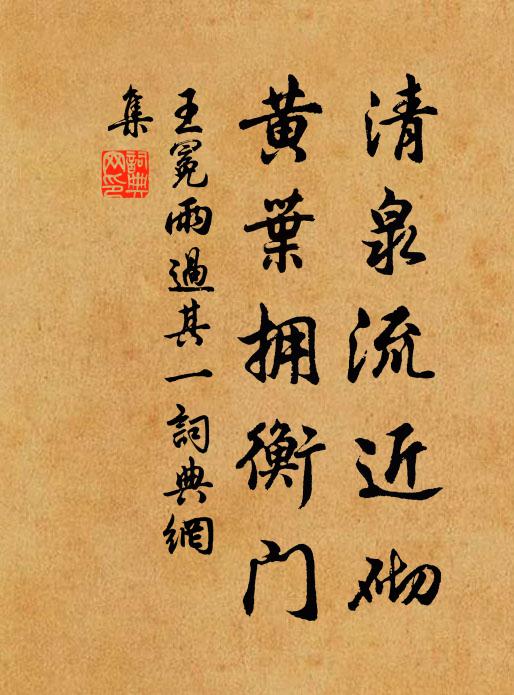 清泉流近砌
黄葉拥衡门
王冕雨過其一詞典網
集
詞典网印